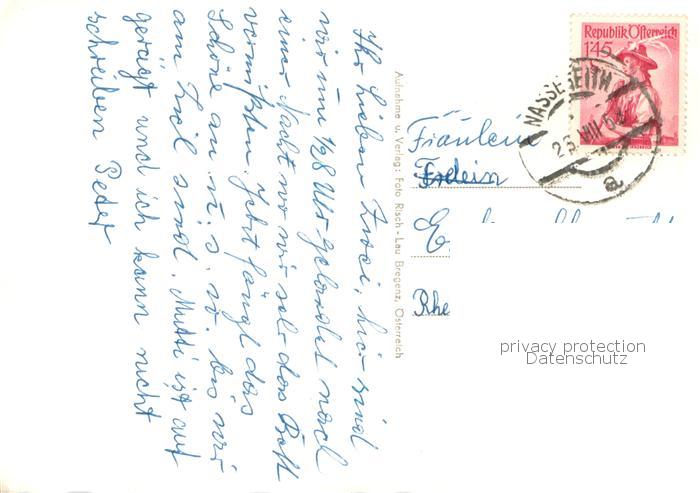 Ihr lieben Zwei, hier sind
wir um 1/28 Uhr gelandet nach
einer Nacht wo wir sehr das Bett
vermißten. Jetzt fängt das
Schöne an. u. s. w. bis wir
am Ziel sind. Mutti ist auf
geregt und ich kann nicht
schreiben Peter
Aufnahme u. Verlag: Foto Risch-Lau Bregenz, Österreich
Republik Österreich
1'45
NASSEREITH
25. VIII. 5
a
Fräulein
E
Rhe
privacy protection
Datenschutz